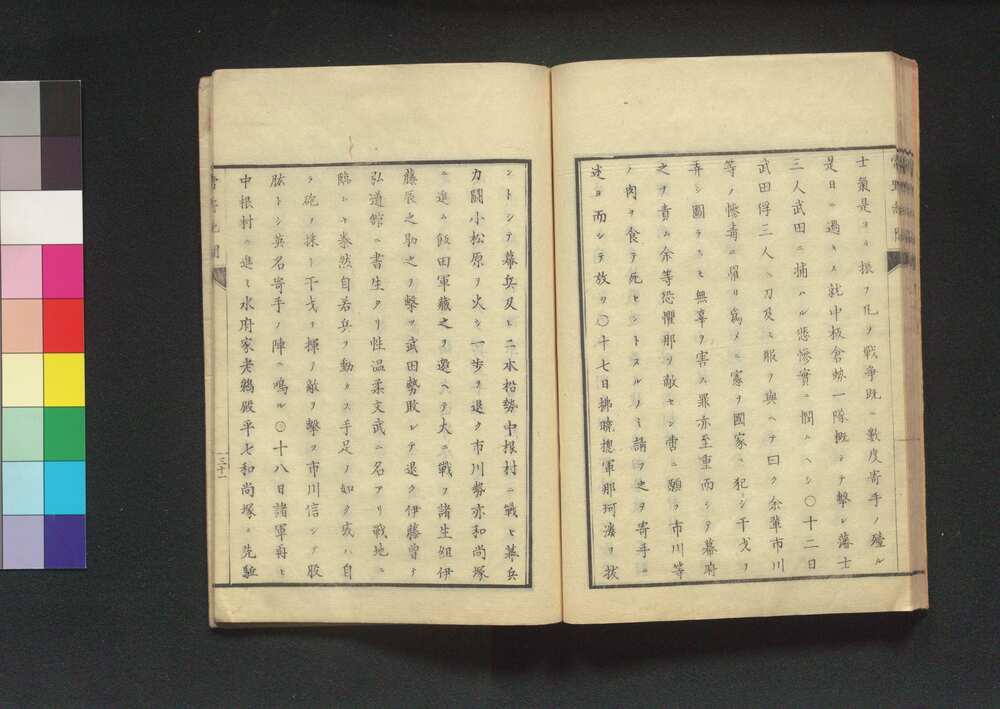 士氣是ヨリ振フ凡ソ戦争既ニ数度寄手ノ殪ル
是日ニ過キス就中板倉勢一隊概シテ撃レ藩士
三人武田ニ捕ハル悲惨實ニ憫ムヘシ〇十二日
武田得三人ニ刀及ヒ服ヲ與ヘテ曰ク余輩市川
等ノ惨毒ニ罹リ為メニ憲ヲ國家ニ犯シ干戈ヲ
弄シ圖ラスモ無辜ヲ害ス罪亦至重而シテ幕府
之ヲ責ム余等恐懼那ソ敵セン啻ニ願フ市川等
ノ肉ヲ食テ死セントスルノミ請フ之ヲ寄手ニ
述ヨ而シテ放ツ〇十七日拂曉摠軍那珂湊ヲ抜
ントシテ幕兵及ヒ二本松勢中根村ニ戦ヒ幕兵
力闘小松原ヲ火シ一歩ヲ退ク市川勢亦和尚塚
ニ進ム飯田軍蔵之ヲ邀ヘテ大ニ戦フ諸生組伊
藤辰之助之ヲ撃ツ武田勢敗レテ退ク伊藤曽テ
弘道館ニ書生タリ性温柔文武ニ名アリ戦地ニ
臨ムヤ泰然自若兵ヲ動カス手足ノ如ク或ハ自
ラ砲ヲ採リ干戈ヲ揮ヒ敵ヲ撃ツ市川信シテ股
肱トシ英名寄手ノ陣ニ鳴ル〇十八日諸軍再ヒ
中根村ニ進ミ水府家老鵜殿平七和尚塚ニ先駈
三十一